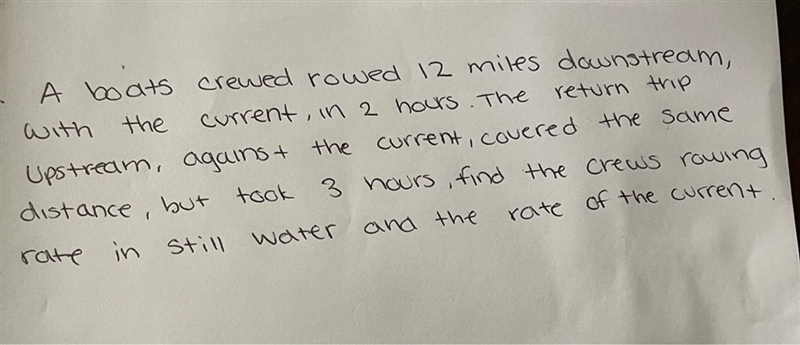 A boats crewed rowed 12 miles downstream,
with the current, in 2 hours. The return trip
Upstream, against the current, covered the same
distance, but took 3 hours, find the crews rowing
rate in still water and the rate of the current.